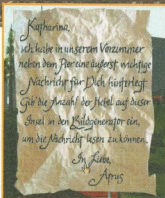 Katharina,
ich habe in unserem Vorzimmer
neben dem Pier eine äußerst wichtige
Nachricht für Dich hinterlegt
Gib die Anzahl der Hotel auf dieser
Insel in den Bildgenerator ein,
um die Nachricht lesen zu können.
In Liebe,